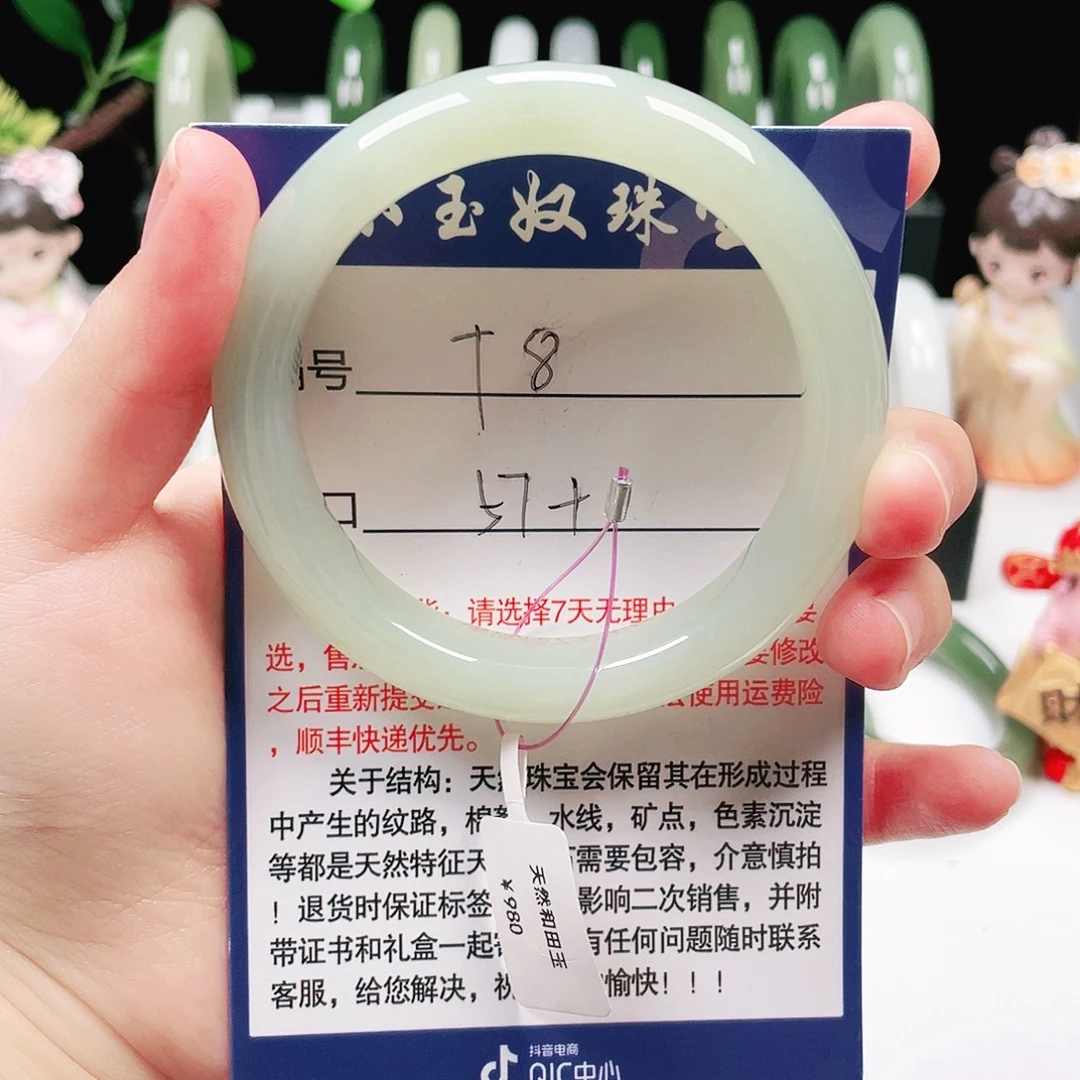 玉奴珠
号 T8
口 57+
请选择7天无理由
选，售
要修改
之后重新提交
使用运费险
，顺丰快递优先。
关于结构：天然珠宝会保留其在形成过程
中产生的纹路，棉絮，水线，矿点，色素沉淀
等都是天然特征天 需要包容，介意慎拍
！退货时保证标签 影响二次销售，并附
带证书和礼盒一起寄 有任何问题随时联系
客服，给您解决，祝 愉快！！！
天然和田玉
980
抖音电商
QIC中心
财